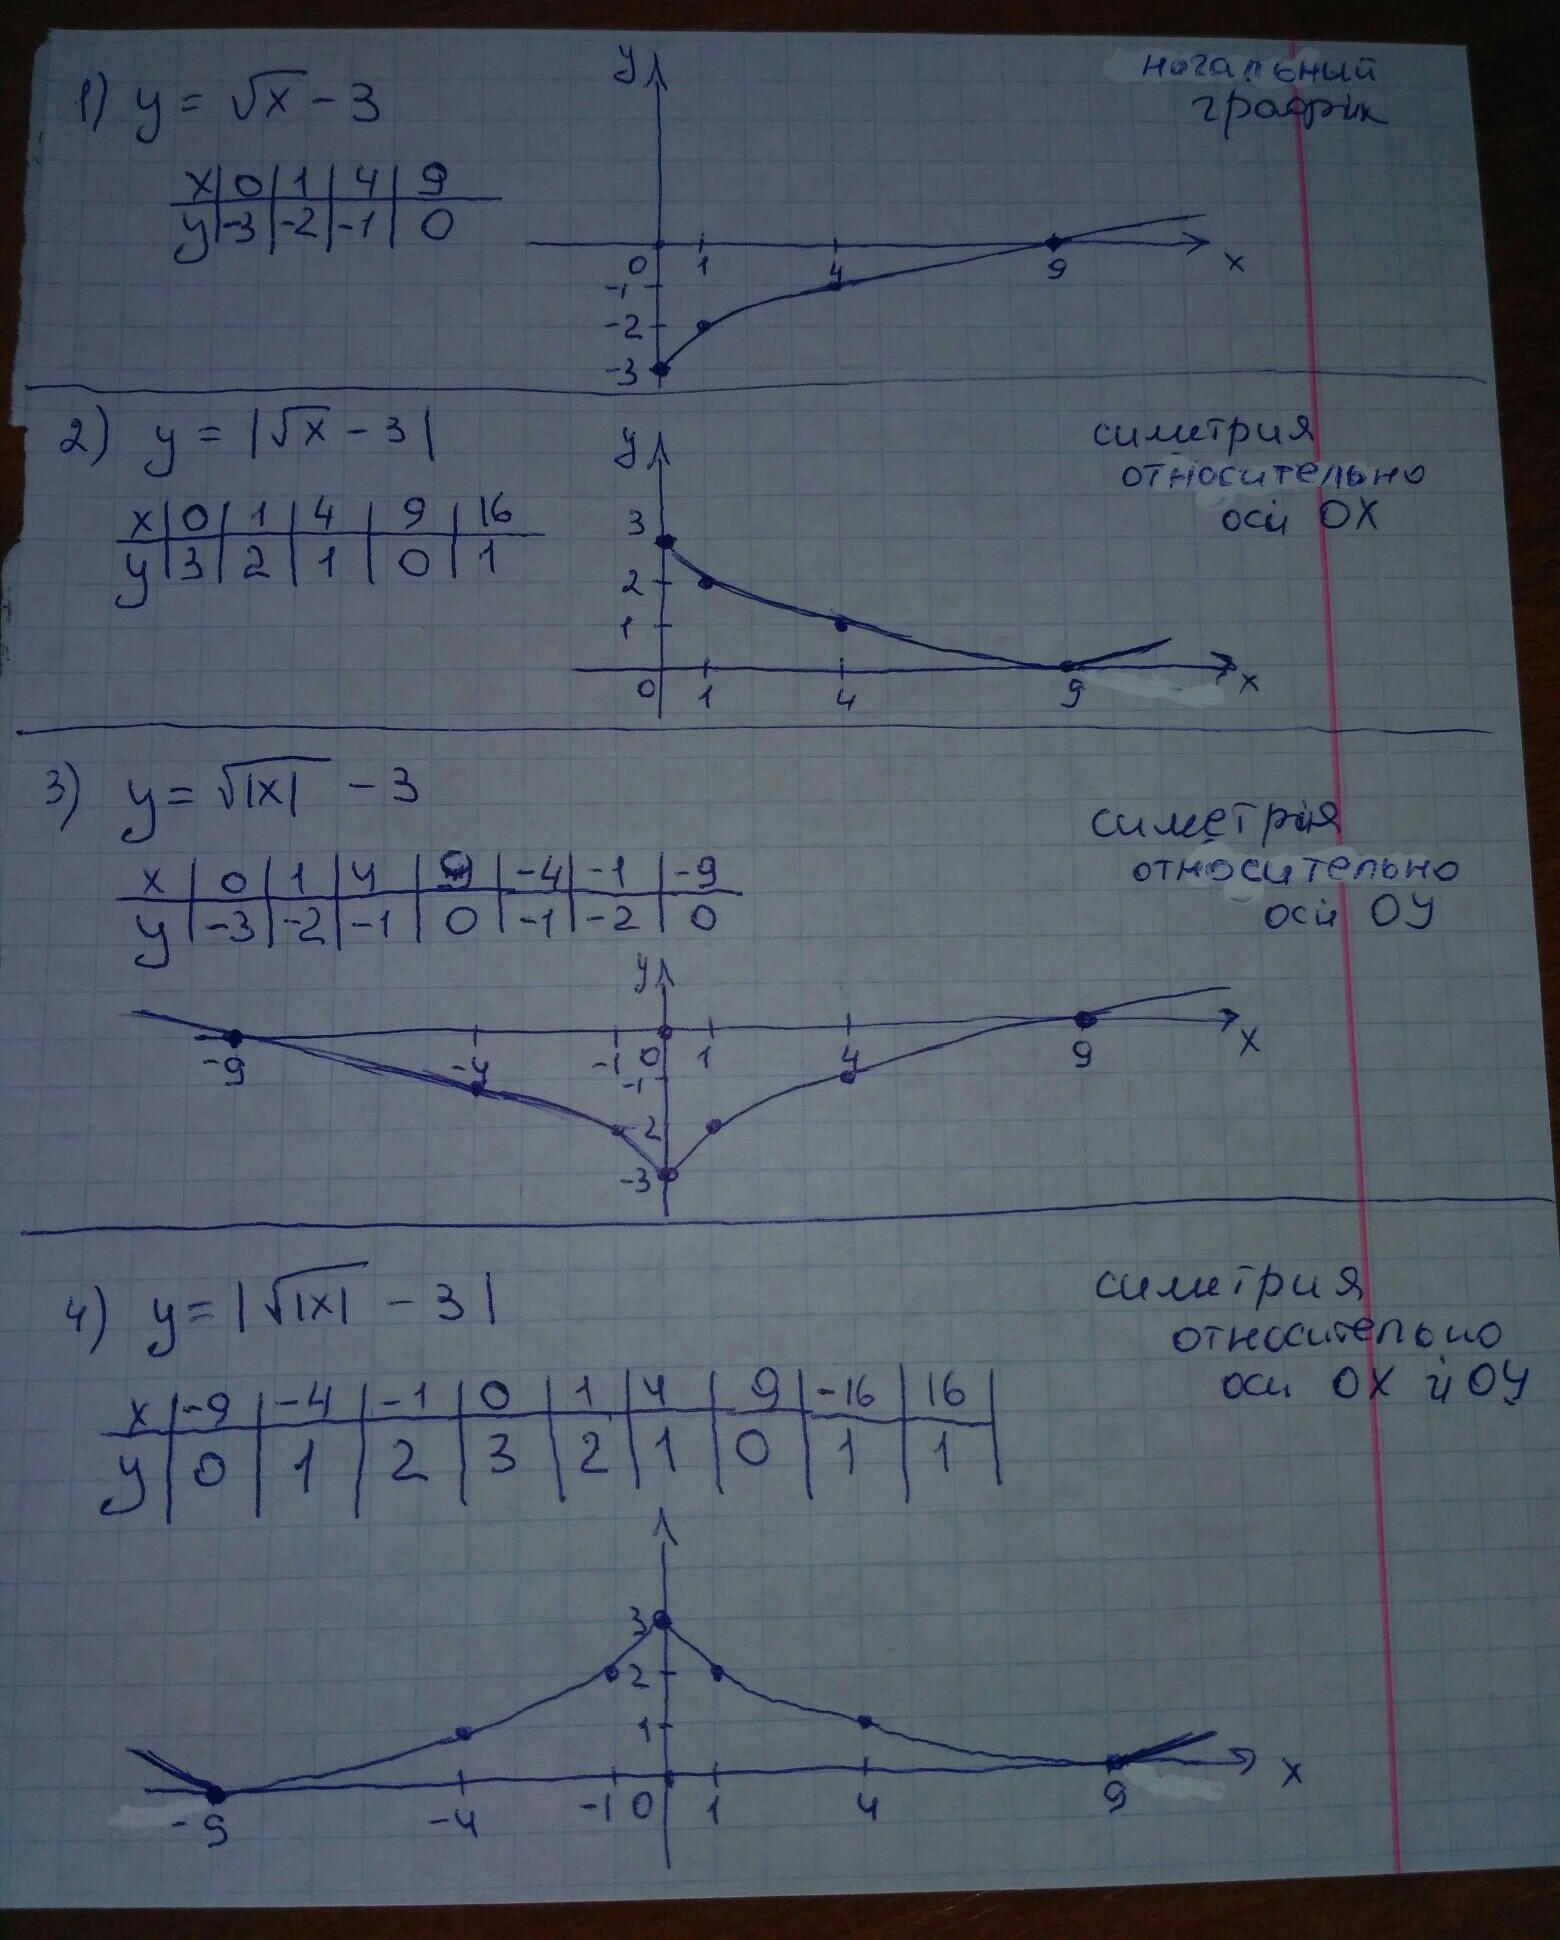 начальный
график
1) y = √x - 3
x | 0 | 1 | 4 | 9
y | -3 | -2 | -1 | 0
y
0 1 4 9 x
-1
-2
-3
2) y = |√x - 3|
симетрия
относительно
оси OX
x | 0 | 1 | 4 | 9 | 16
y | 3 | 2 | 1 | 0 | 1
y
3
2
1
0 1 4 9 x
3) y = √|x| - 3
симетрия
относительно
оси OY
x | 0 | 1 | 4 | 9 | -4 | -1 | -9
y | -3 | -2 | -1 | 0 | -1 | -2 | 0
y
-9 -4 -1 0 1 4 9 x
-1
-2
-3
4) y = |√|x| - 3|
симетрия
относительно
оси OX и OY
x | -9 | -4 | -1 | 0 | 1 | 4 | 9 | -16 | 16
y | 0 | 1 | 2 | 3 | 2 | 1 | 0 | 1 | 1
3
2
1
-9 -4 -1 0 1 4 9 x